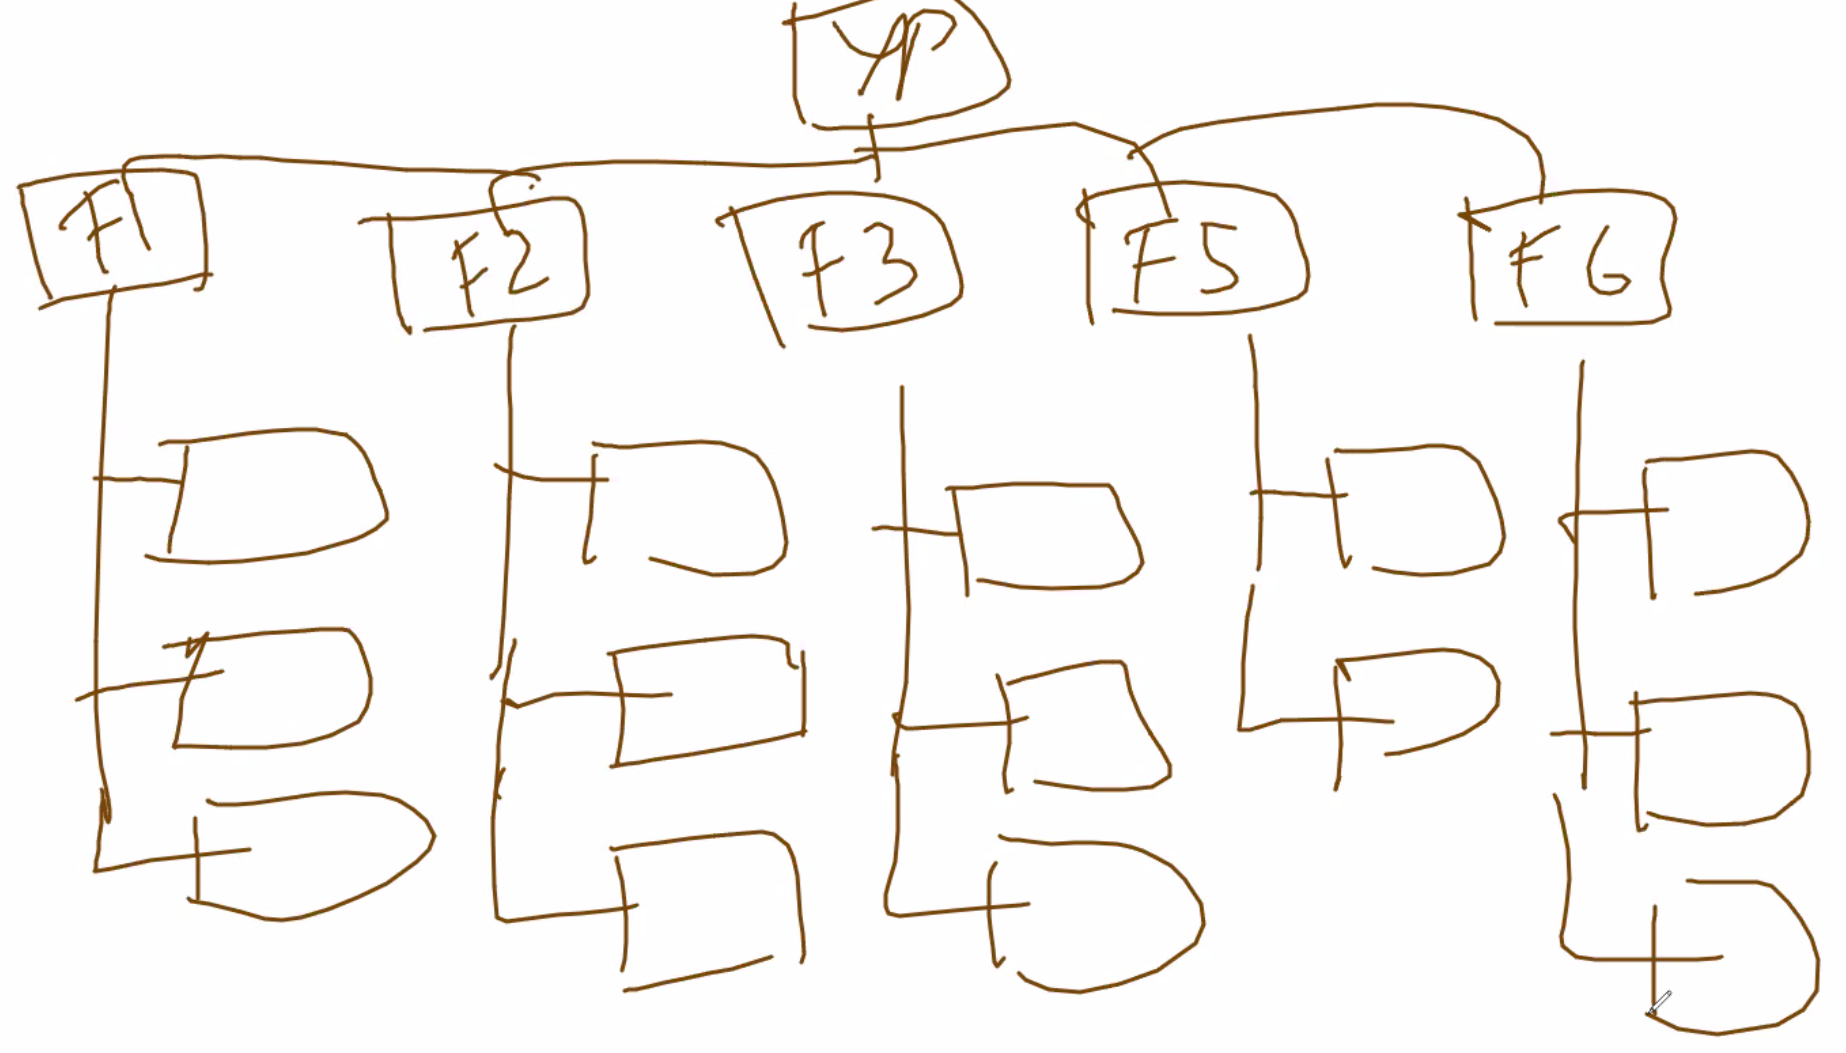 YP
F1
F2
F3
F5
F6